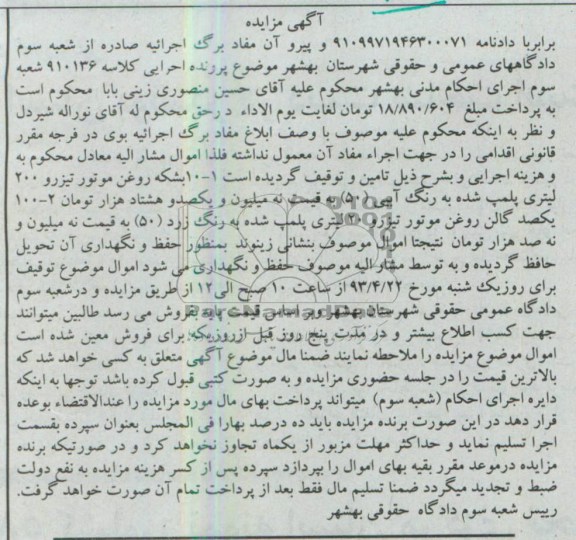 آگهی مزایده
برابربا دادنامه ۹۱۰۹۹۷۱۹۴۶۳۰۰۰۷۱ و پیرو آن مفاد برگ اجرائیه صادره از شعبه سوم
دادگاههای عمومی و حقوقی شهرستان بهشهر موضوع پرونده اجرایی کلاسه ۹۱۰۱۳۶ شعبه
سوم اجرای احکام مدنی بهشهر محکوم علیه آقای حسین منصوری زینی بابا محکوم است
به پرداخت مبلغ ۱۸/۸۹۰/۶۰۴ تومان لغایت یوم الاداء در حق محکوم له آقای نوراله شیردل
و نظر به اینکه محکوم علیه موصوف با وصف ابلاغ مفاد برگ اجرائیه بوی در فرجه مقرر
قانونی اقدامی را در جهت اجراء مفاد آن معمول نداشته فلذا اموال مشار الیه معادل محکوم به
و هزینه اجرایی و بشرح ذیل تامین و توقیف گردیده است ۱-۱۰بشکه روغن موتور تیزرو ۲۰۰
لیتری پلمپ شده به رنگ آبی (۵۰) به قیمت نه میلیون و یکصدو هشتاد هزار تومان ۲-۱۰۰
یکصد گالن روغن موتور تیزرو لیتری پلمپ شده به رنگ زرد (۵۰) به قیمت نه میلیون و
نه صد هزار تومان نتیجتا اموال موصوف بنشانی زینوند بمنظور حفظ و نگهداری آن تحویل
حافظ گردیده و به توسط مشار الیه موصوف حفظ و نگهداری می شود اموال موضوع توقیف
برای روزیک شنبه مورخ ۹۳/۴/۲۲ از ساعت ۱۰ صبح الی۱۲ از طریق مزایده و درشعبه سوم
دادگاه عمومی حقوقی شهرستان بهشهر وبر اساس قیمت پایه بفروش می رسد طالبین میتوانند
جهت کسب اطلاع بیشتر و در مدت پنج روز قبل ازروزیکه برای فروش معین شده است
اموال موضوع مزایده را ملاحظه نمایند ضمنا مال موضوع آگهی متعلق به کسی خواهد شد که
بالاترین قیمت را در جلسه حضوری مزایده و به صورت کتبی قبول کرده باشد توجها به اینکه
دایره اجرای احکام (شعبه سوم) میتواند پرداخت بهای مال مورد مزایده را عندالاقتضاء بوعده
قرار دهد در این صورت برنده مزایده باید ده درصد بهارا فی المجلس بعنوان سپرده بقسمت
اجرا تسلیم نماید و حداکثر مهلت مزبور از یکماه تجاوز نخواهد کرد و در صورتیکه برنده
مزایده درموعد مقرر بقیه بهای اموال را بپردازد سپرده پس از کسر هزینه مزایده به نفع دولت
ضبط و تجدید میگردد ضمنا تسلیم مال فقط بعد از پرداخت تمام آن صورت خواهد گرفت.
رییس شعبه سوم دادگاه حقوقی بهشهر